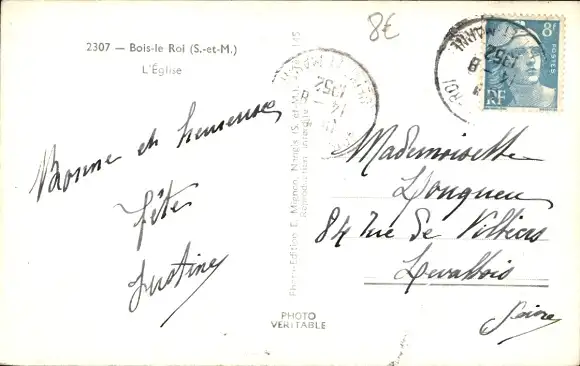 2307 — Bois-le Roi (S.-et-M.)
L'Église
Bonne et heureuse
fête
Justine
Photo-Edition E. Mignon, Nangis (S.-et-M.)
Reproduction interdite
PHOTO
VERITABLE
8€
8F
POSTES
RF
14 - 8
1952
Mademoiselle
84 Rue de Villiers
Levallois
Seine